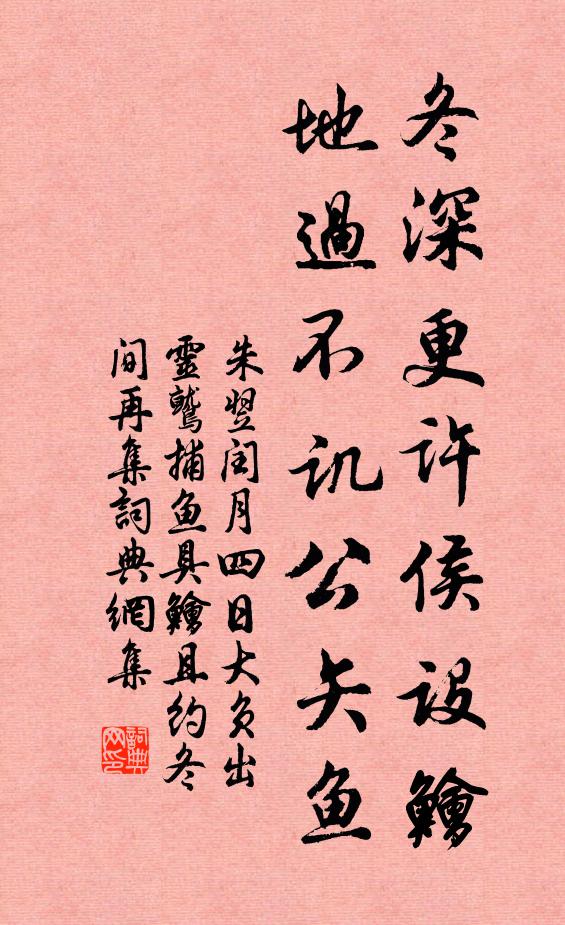 冬深更許侯設鱠
地過不訊公矢魚
朱翌閏月四日大負出
靈鷲捕魚具鱠且約冬
间再集詞典網集
詞典網印